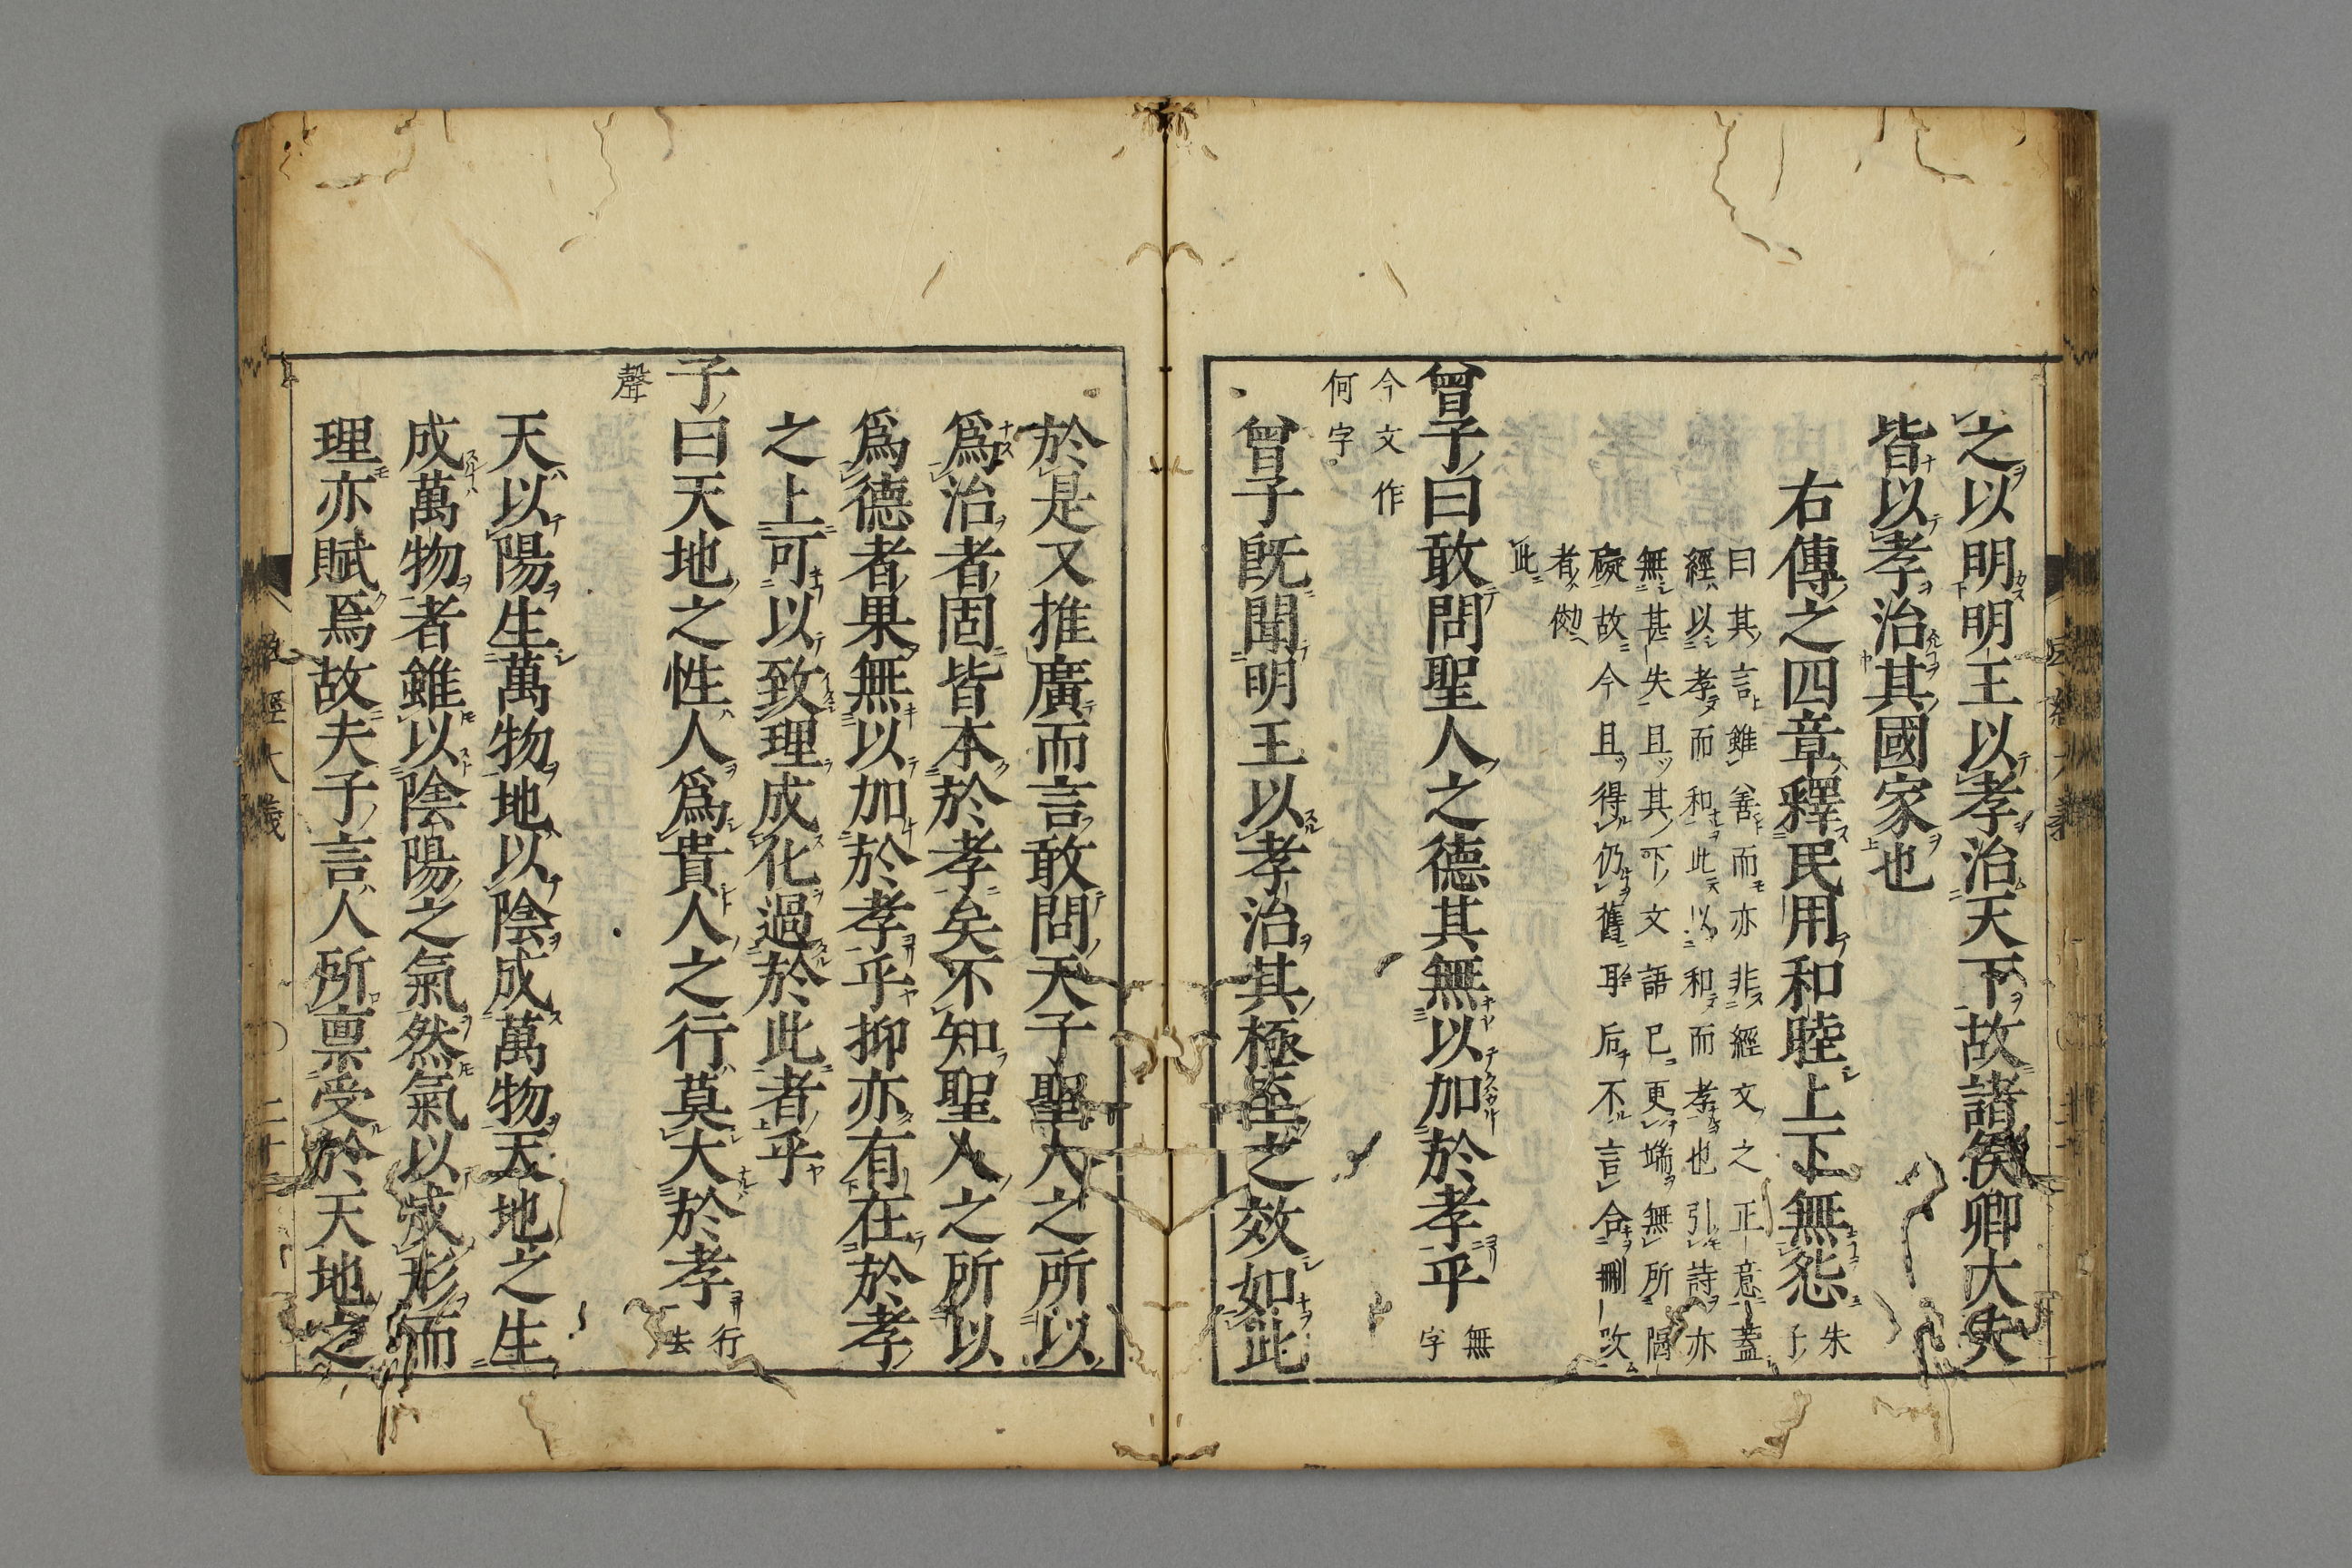 之以明明王以孝治天下故諸侯卿大夫
皆以孝治其國家也
右傳之四章釋民用和睦上下無怨
朱
子
曰其言雖善而亦非經文之正意蓋
經以孝而和此以和而孝也引詩亦
無甚失且其下文語已更端無所隔
礙故今且得仍舊耳后不言合刪改
者倣
此
曾子曰敢問聖人之德其無以加於孝乎
無
字
今文作
何字
曾子既聞明王以孝治其極至之效如此
於是又推廣而言敢問天子聖人之所以
爲治者固皆本於孝矣不知聖人之所以
爲德者果無以加於孝乎抑亦有在於孝
之上可以致理成化過於此者乎
子曰天地之性人爲貴人之行莫大於孝
行
去
聲
天以陽生萬物地以陰成萬物天地之生
成萬物者雖以陰陽之氣然氣以成形而
理亦賦焉故夫子言人所禀受於天地之
經大義